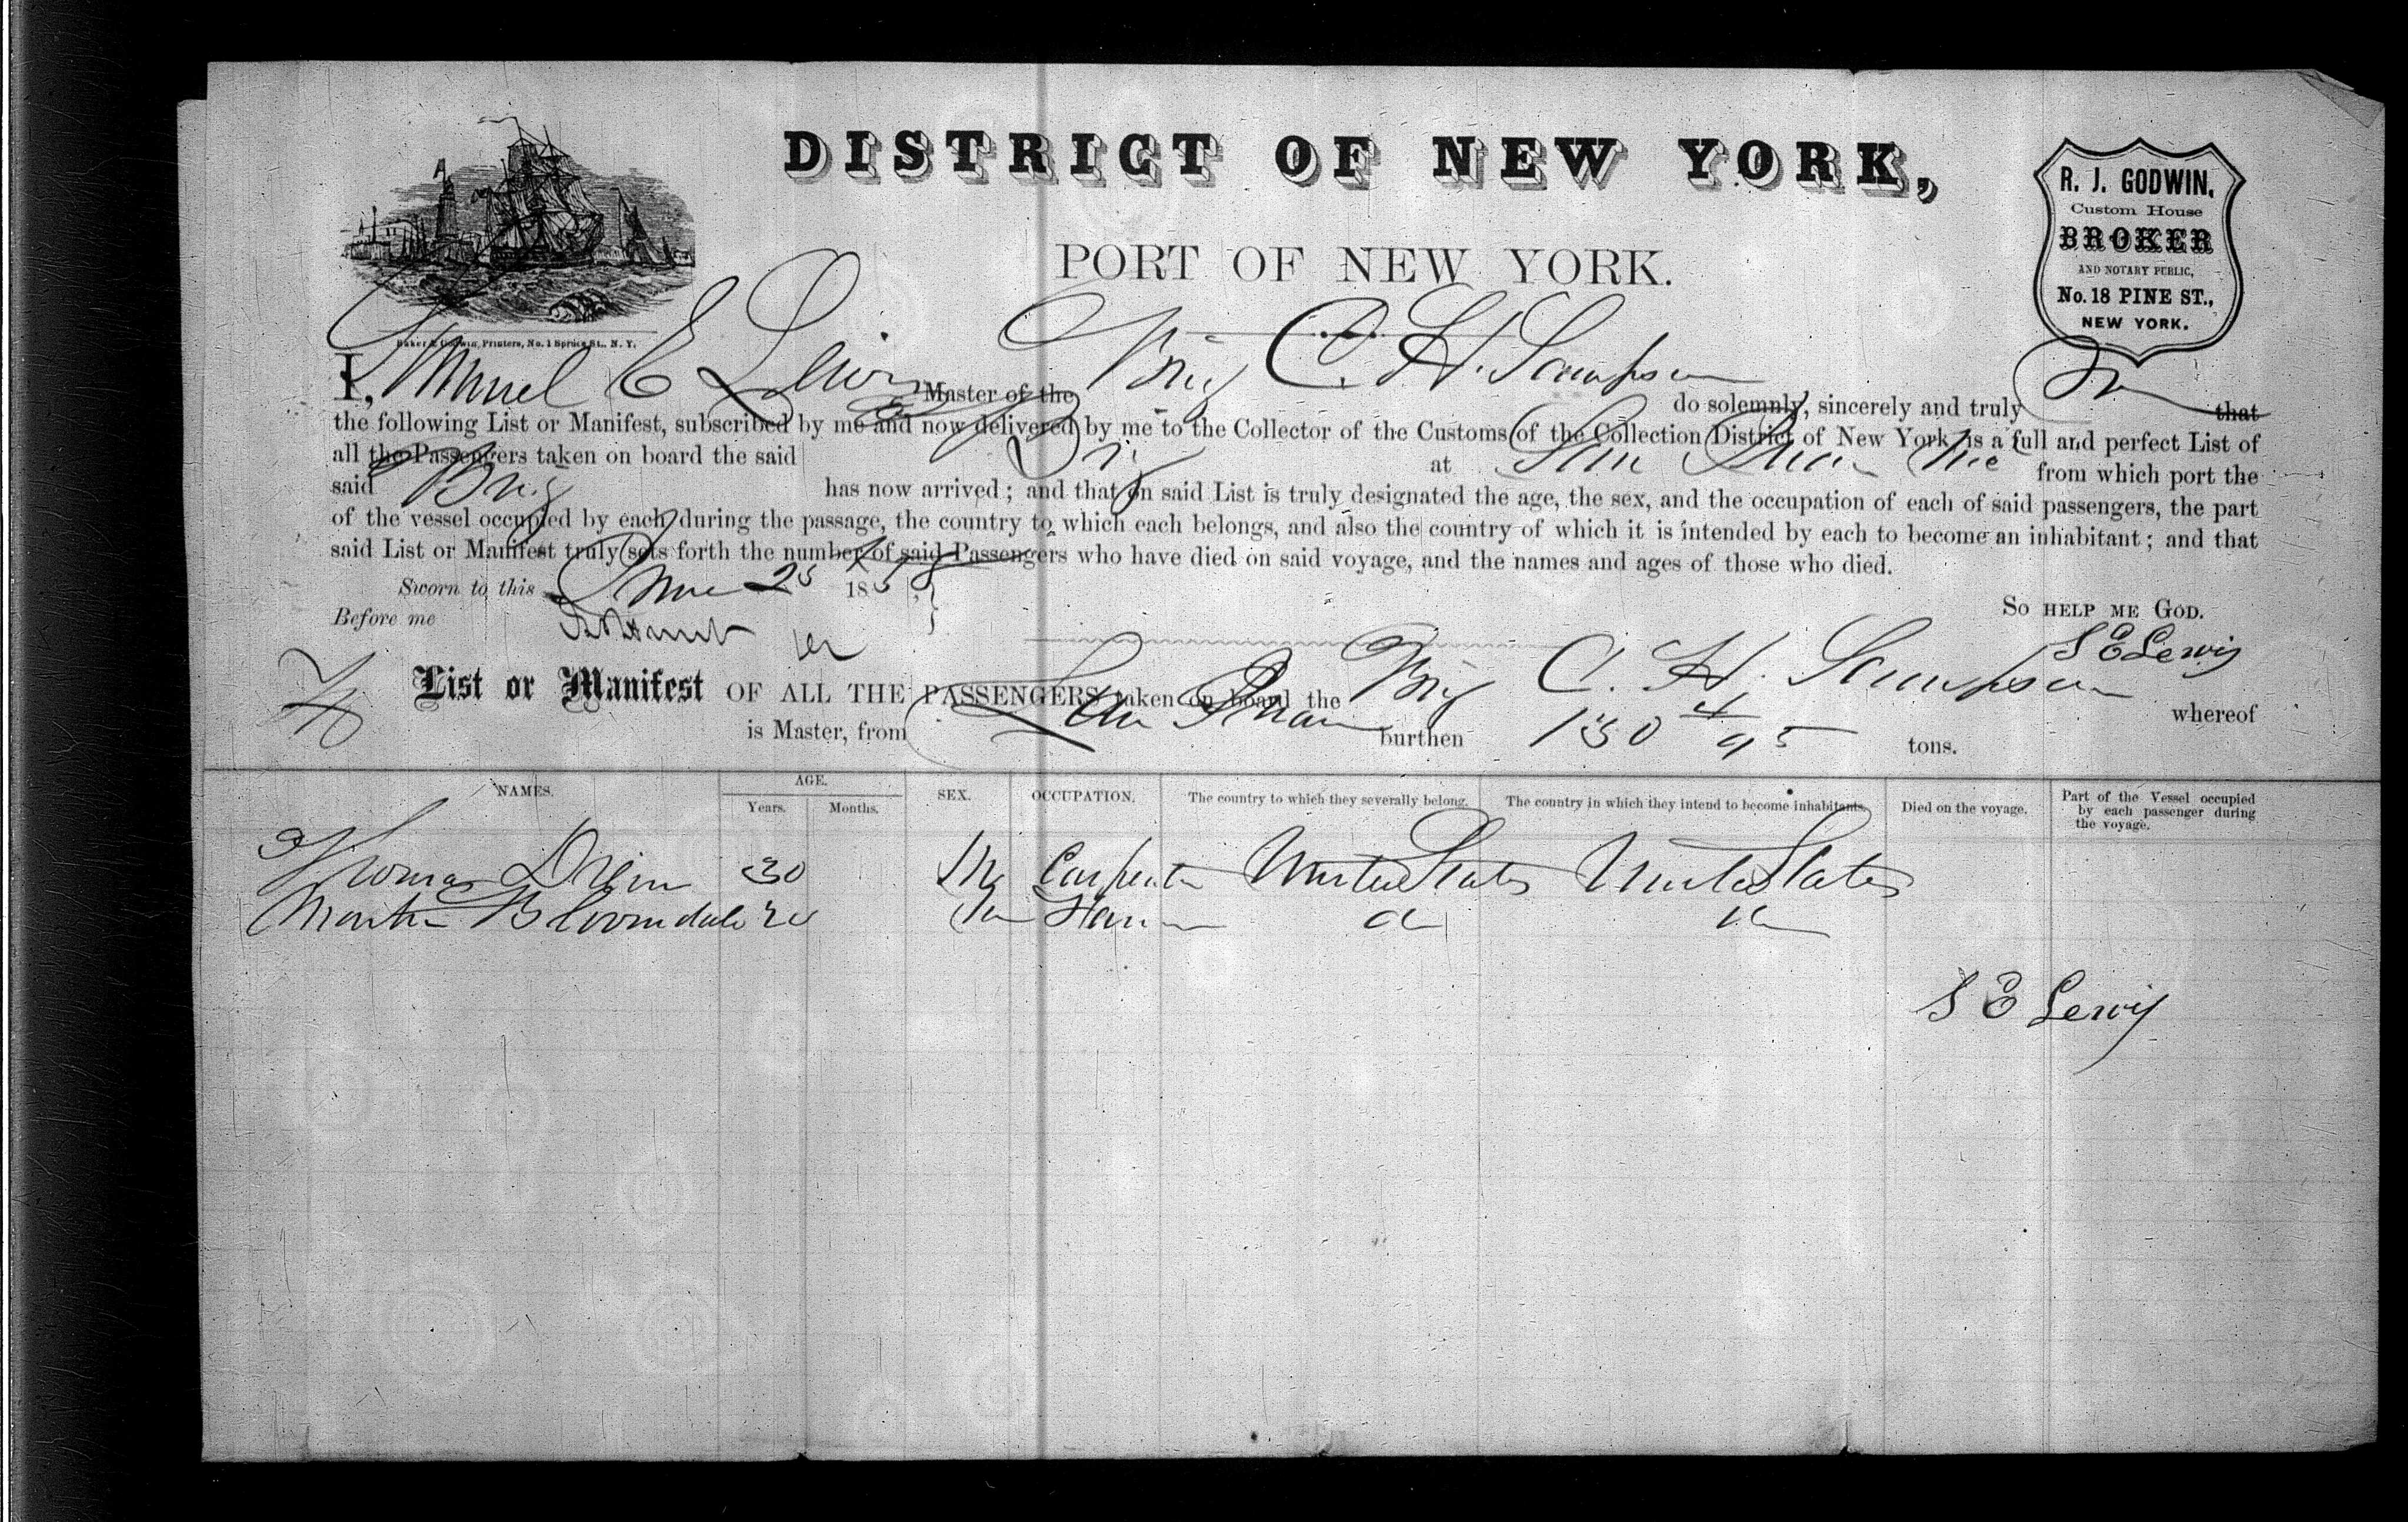 DISTRICT OF NEW YORK,
PORT OF NEW YORK.
R. J. GODWIN,
Custom House
BROKER
AND NOTARY PUBLIC,
No. 18 PINE ST.,
NEW YORK.
Baker & Godwin, Printers, No. 1 Spruce St., N. Y.
I, Samuel E Lewis Master of the Brig C. H. Sampson do solemnly, sincerely and truly that
the following List or Manifest, subscribed by me and now delivered by me to the Collector of the Customs of the Collection District of New York, is a full and perfect List of
all the Passengers taken on board the said Brig at San Juan from which port the
said Brig has now arrived; and that on said List is truly designated the age, the sex, and the occupation of each of said passengers, the part
of the vessel occupied by each during the passage, the country to which each belongs, and also the country of which it is intended by each to become an inhabitant; and that
said List or Manifest truly sets forth the number of said Passengers who have died on said voyage, and the names and ages of those who died.
Sworn to this June 25 1858,
So HELP ME GOD.
Before me
S E Lewis
List or Manifest OF ALL THE PASSENGERS taken on board the Brig C. H. Sampson whereof
is Master, from San Juan burthen 130 4/95 tons.
NAMES. AGE. SEX. OCCUPATION. The country to which they severally belong. The country in which they intend to become inhabitants. Died on the voyage. Part of the Vessel occupied by each passenger during the voyage.
Years. Months.
Thomas 30 M Carpenter United States United States
Martin Bloomdale
S E Lewis